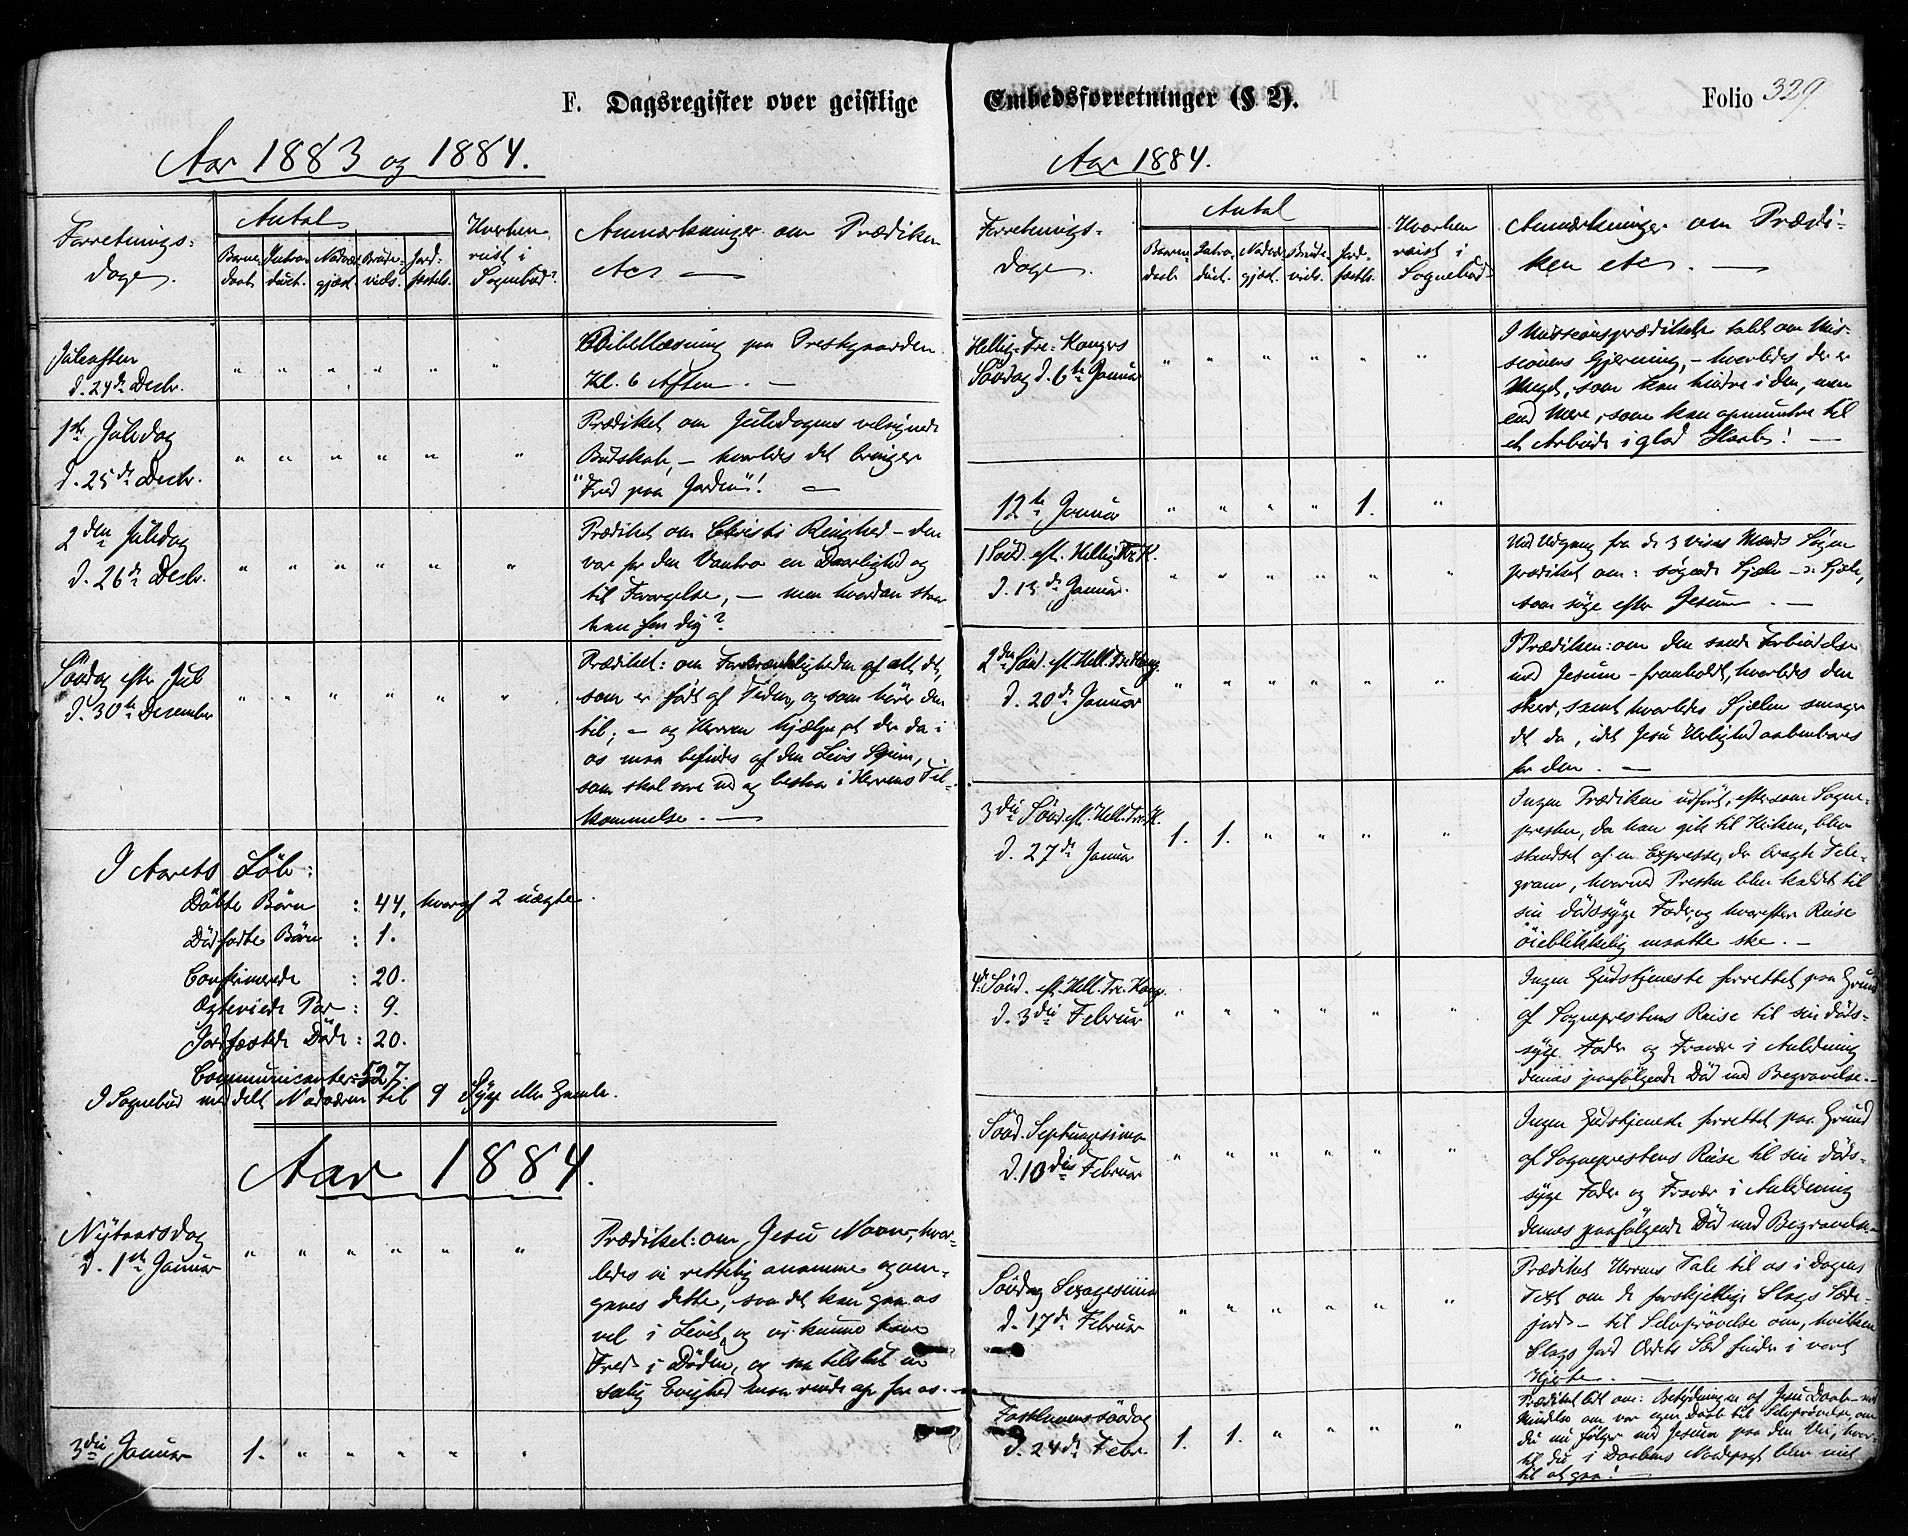 F. Dagsregister over geistlige
Aar 1883 og 1884.
Forretnings-
dage.
Antal
Barne-
daab
Intro-
duct.
Nadver-
gjæst.
Brude-
viels.
Jord-
fæstels.
Hvorhen
reist i
Sognebud?
Anmærkninger om Prædiken
etc. —
Juleaften
d. 24de Decbr.
" " " " " "
Bibellæsning paa Prestgaarden
Kl. 6 Aften. —
1ste Juledag
d. 25de Decbr.
" " " " " "
Prædiket om Juledagens velsignede
Budskab, — hvorledes det bringer
"Fred paa Jorden"! —
2den Juledag
d. 26de Decbr.
" " " " " "
Prædiket om Christi Ringhed – den
var for den Vantro en Daarlighed og
til Forargelse, — men hvordan staar
han for dig?
Søndag efter Jul
d. 30te Desember
" " " " " "
Prædiket: om Forkrænkligheden af alt det,
som er født af Tiden, og som hører den
til; – og Herren hjælpe, at der da i
os maa befindes af den Levis
som skal vare ud og bestaa i Herrens Til-
kommelse. —
I Aarets Løb:
Døbte Børn : 44, hvoraf 2 uægte.
Dødfødte Børn : 1.
Confirmerede : 20.
Ægteviede Par : 9.
Jordfæstede Døde : 20.
Communicanter: 527.
I Sognebud meddelt Nadveren til 9 Syge eller Gamle.
Aar 1884.
Nytaarsdag
d. 1ste Januar
" " " " " "
Prædiket: om Jesu Navn, hvor-
ledes vi rettelig anamme og om-
gaaes dette, saa det kan gaa os
vel i Livet, og vi kunne have
Fred i Døden, og saa tilsidst en
salig Evighed maa rinde op for os. —
3die Januar
1. " " " " "
Embedsforretninger (§ 2).
Folio 329
Aar 1884.
Forretnings-
dage.
Antal
Barne-
daab.
Intro-
duct.
Nadver-
gjæst.
Brude-
viels.
Jord-
fæstls.
Hvorhen
reist i
Sognebud.
Anmærkninger om Prædi-
ken etc. —
Hellig-Tre-Kongers
Søndag d. 6te Januar
" " " " " "
I Missionsprædikenen talt om Mis-
sionens Gjerning, – hvorledes der er
Meget, som kan hindre i den, men
end Mere, som kan opmuntre til
et Arbeide i glad Haab! —
12te Januar
" " " " 1. "
1 Sønd. eft. Hellig Tr. K.
d. 13de Januar.
" " " " " "
Med Udgang fra de 3 vises Mænds Søgen
prædiket om: søgende Sjæle – ɔ: Sjæle,
som søge efter Jesum. —
2den Sønd. eft. Hell. Tre Kong.
d. 20de Januar
" " " " " "
I Prædiken: om den sande Forbindelse
med Jesum – fremholdt, hvorledes den
skeer, samt hvorledes Sjælen smager
det da, idet Jesu Herlighed aabenbares
for den. —
3die Sønd. eft. Hell. Tre K.
d. 27de Januar
1. 1. " " " "
Ingen Prædiken udført, eftersom Sogne-
presten, da han gik til Kirken, blev
standset af en Expresse, der bragte Tele-
gram, hvorved Presten blev kaldet til
sin dødssyge Fader, og hvorefter Reise
øieblikkelig maatte ske. —
4de Sønd. eft. Hell. Tre. Kong.
d. 3die Februar
" " " " " "
Ingen Gudstjeneste forrettet paa Grund
af Sogneprestens Reise til sin døds-
syge Fader og Fravær i Anledning
dennes paafølgende Død med Begravelse. –
Sønd. Septuagesima
d. 10die Februar
" " " " " "
Ingen Gudstjeneste forrettet paa Grund
af Sogneprestens Reise til sin døds-
syge Fader og Fravær i Anledning
dennes paafølgende Død med Begravelse. –
Søndag Sexagesima
d. 17de Februar
" " " " " "
Prædiket Herrens Tale til os i Dagens
Text om de forskjellige Slags Sæde-
jord – til Selvprøvelse om, hvilken
Slags Jord Ordets Sæd finder i vort
Hjerte. —
Fastelavnssøndag
d. 24de Febr.
1. 1. " " " "
Prædiket lidt om: Betydningen af Jesu Daab – med
Mindelse om vor egen Daab til Selvprøvelse, om
du nu følger med Jesum paa den Vei, hvor-
til du i Daabens Naadepagt blev viet
til at gaa! —